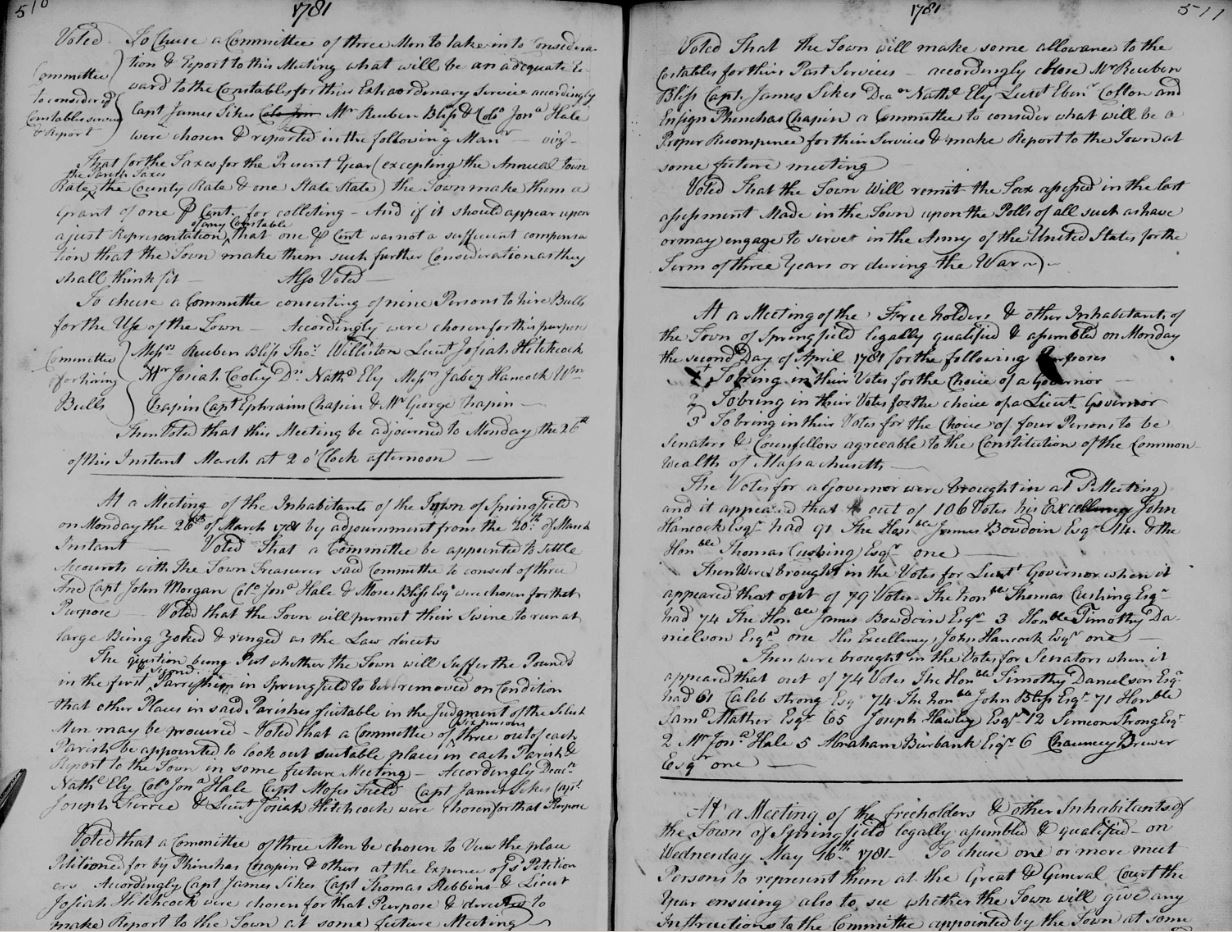 510
1781
Voted To Chuse a Committee of three Men to take into Considera-
tion & Report to this Meeting what will be an adequate Re-
ward to the Constables for their Extraordinary Service accordingly
Capt James Sikes Mr Reuben Bliss & Colo Jona Hale
were chosen & reported in the following Manr viz-
Committee
to considered
Constables service
& Report
That for the Taxes for the Present Year (excepting the Annual Town
the Parish Taxes
Rate, the County Rate & one State Rate) the Town make them a
Grant of one P Cent. for colleting - And if it should appear upon
of any Constable
a just Representation, that one P Cent was not a sufficient compensa
tion that the Town make them such further Consideration as they
shall think fit - Also Voted -
To chuse a Committee consisting of nine Persons to hire Bulls
for the Use of the Town - Accordingly were chosen for this purpose
Committee
for hiring
Bulls
Messrs Reuben Bliss Thos Williston Lieut Josiah Hitchcock
Mr Josiah Cooley Dn Nathl Ely Messrs Jabez Hancock Wm
Chapin Capt Ephraim Chapin & Mr George Chapin -
Then Voted that this Meeting be adjourned to Monday the 26th
of this Instant March at 2 o'Clock afternoon -
At a Meeting of the Inhabitants of the Town of Springfield
on Monday the 26th of March 1781 by adjournment from the 20th of March
Instant - Voted That a Committee be appointed to Settle
Accounts with the Town Treasurer said Committee to consist of three
And Capt John Morgan Colo Jona Hale & Moses Bliss Esqr were chosen for that
Purpose - Voted that the Town will permit their Swine to run at
large Being Yoked & ringed as the Law directs
The question being Put whether the Town will Suffer the Pounds
& Second
in the first Parishes in Springfield to be removed on Condition
that other Places in said Parishes suitable in the Judgment of the Select
six persons
Men may be procured - Voted that a Committee of three out of each
Parish be appointed to look out suitable places in each Parish &
Report to the Town in some future Meeting - Accordingly Deacn
Nathl Ely Colo Jona Hale Capt Moses Field Capt James Sikes Capt
Joseph Ferree & Lieut Josiah Hitchcock were chosen for that Purpose
Voted that a Committee of three Men be chosen to View the place
Petitioned for by Phinehas Chapin & others at the Expence of sd Petition
ers Accordingly Capt James Sikes Capt Thomas Stebbins & Lieut
Josiah Hitchcock were chosen for that Purpose & directed to
make Report to the Town at some future Meeting
1781
511
Voted That the Town will make some allowance to the
Costables for their Past Services - accordingly chose Mr Reuben
Bliss Capt. James Sikes Deacn Nathl Ely Lieut Ebenr Colton and
Ensign Phinehas Chapin a Committee to consider what will be a
Proper Recompence for their Services & make Report to the Town at
some future meeting
Voted That the Town Will remit the Tax assessed in the last
assessment Made in the Town upon the Polls of all such as have
or may engage to serve in the Army of the United States for the
Term of three Years or during the War
At a Meeting of the Freeholders & other Inhabitants of
the Town of Springfield legally qualified & assembled on Monday
the second Day of April 1781 for the following Purposes
1st To bring in their Votes for the Choice of a Governor
2 To bring in their Votes for the choice of a Lieut Governor
3d To bring in their Votes for the Choice of four Persons to be
Senators & Councellors agreable to the Constitution of the Common-
wealth of Massachusetts
The Votes for a Governor were brought in at sd Meeting
and it appeared that out of 106 Votes his Excellency John
Hancock Esqr had 91 The Honble James Bowdoin Esqr 14 & the
Honble Thomas Cushing Esqr one -
Then Were brought in the Votes for Lieut Governor when it
appeared that out of 79 Votes The honble Thomas Cushing Esqr
had 74 The Honble James Bowdoin Esqr 3 Honble Timothy Da-
nielson Esqr one His Excellency John Hancock Esqr one -
Then were brought in the Votes for Senators when it
appeared that out of 74 Votes The Honble Timothy Danielson Esqr
had 61 Caleb Strong Esqr 74 The honble John Bliss Esqr 71 Honble
Saml Mather Esqr 65 Joseph Hawley Esqr 12 Simeon Strong Esqr
2 Mr Jona Hale 5 Abraham Burbank Esqr 6 Chauncy Brewer
Esqr one -
At a Meeting of the freeholders & other Inhabitants of
the Town of Springfield legally assembled & qualified on
Wednesday May 16th 1781 - To chuse one or more meet
Persons to represent them at the Great & General Court the
Year ensuing also to see whether the Town will give any
Instructions to the Committe appointed by the Town at some